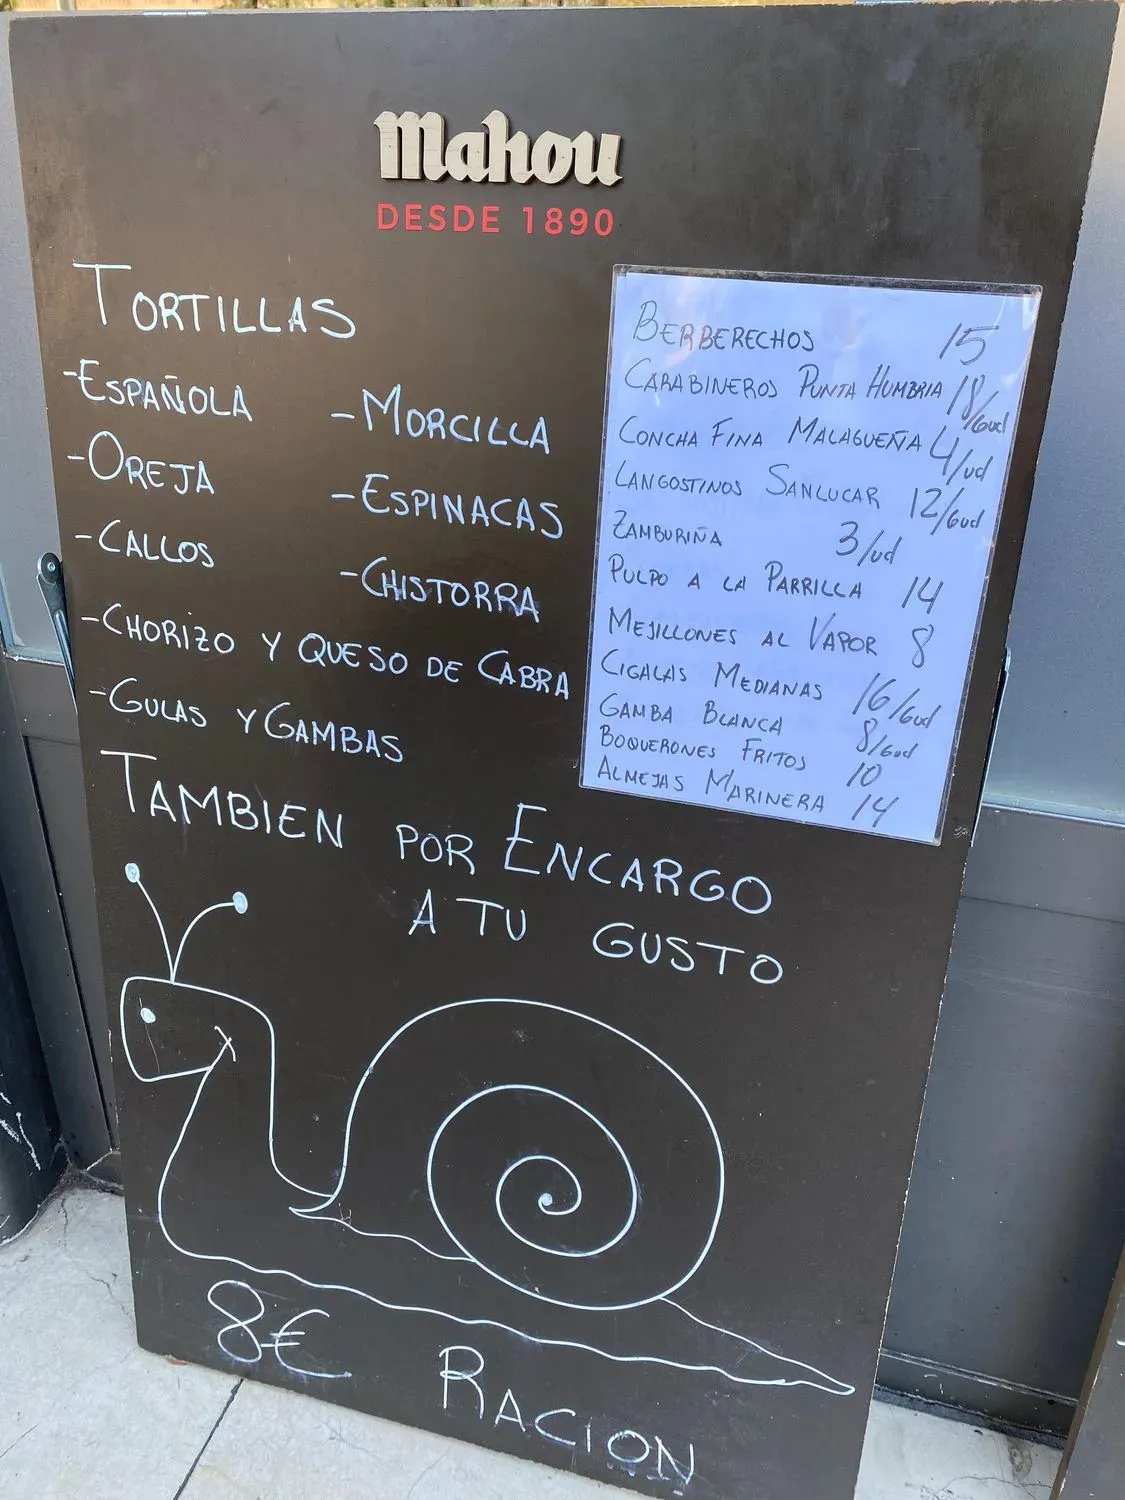 Mahou
DESDE 1890
TORTILLAS
-ESPAÑOLA
-MORCILLA
-OREJA
-ESPINACAS
-CALLOS
-CHISTORRA
-CHORIZO Y QUESO DE CABRA
-GULAS Y GAMBAS
TAMBIEN POR ENCARGO
A TU GUSTO
8€ RACION
BERBERECHOS 15
CARABINEROS PUNTA HUMBRIA 18/6ud
CONCHA FINA MALAGUEÑA 4/ud
LANGOSTINOS SANLUCAR 12/6ud
ZAMBURIÑA 3/ud
PULPO A LA PARRILLA 14
MEJILLONES AL VAPOR 8
CIGALAS MEDIANAS 16/6ud
GAMBA BLANCA 8/6ud
BOQUERONES FRITOS 10
ALMEJAS MARINERA 14